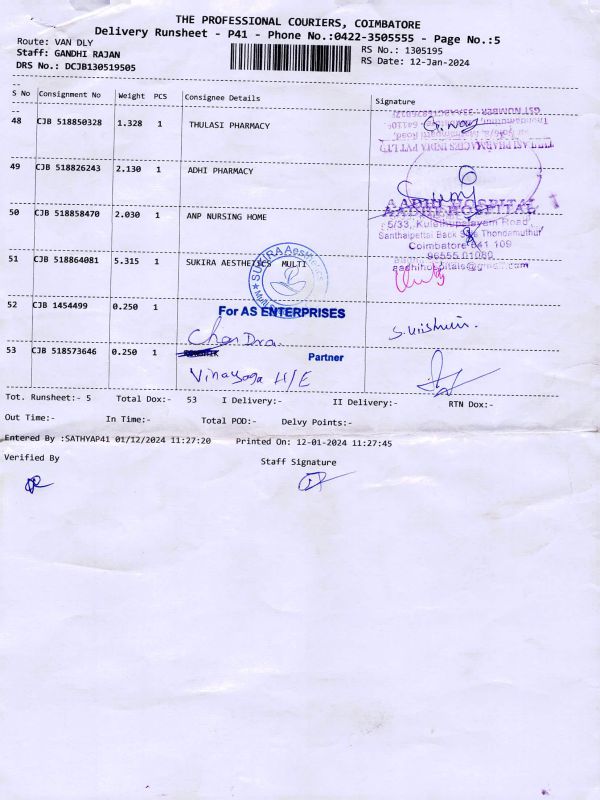 THE PROFESSIONAL COURIERS, COIMBATORE
Delivery Runsheet - P41 - Phone No.:0422-3505555 - Page No.:5
Route: VAN DLY
RS No.: 1305195
Staff: GANDHI RAJAN
RS Date: 12-Jan-2024
DRS No.: DCJB130519505
S No Consignment No Weight PCS Consignee Details Signature
48 CJB 518850328 1.328 1 THULASI PHARMACY
THULASI PHARMACIES INDIA PVT LTD
49 CJB 518826243 2.130 1 ADHI PHARMACY
AADHI HOSPITAL
50 CJB 518858470 2.030 1 ANP NURSING HOME
AADHI HOSPITAL
5/33, Kulathupalayam Road
Santhaipettai Bank Thondamuthur
Coimbatore 641 109
96555 01080
51 CJB 518864081 5.315 1 SUKIRA AESTHETICS MULTI
SUKIRA Aesthetics
aadhihospitals@gmail.com
52 CJB 1454499 0.250 1
For AS ENTERPRISES
Chandra
S. Vishnu.
Partner
53 CJB 518573646 0.250 1
Vinayaga H/E
Tot. Runsheet:- 5 Total Dox:- 53 I Delivery:- II Delivery:- RTN Dox:-
Out Time:- In Time:- Total POD:- Delvy Points:-
Entered By :SATHYAP41 01/12/2024 11:27:20 Printed On: 12-01-2024 11:27:45
Verified By Staff Signature